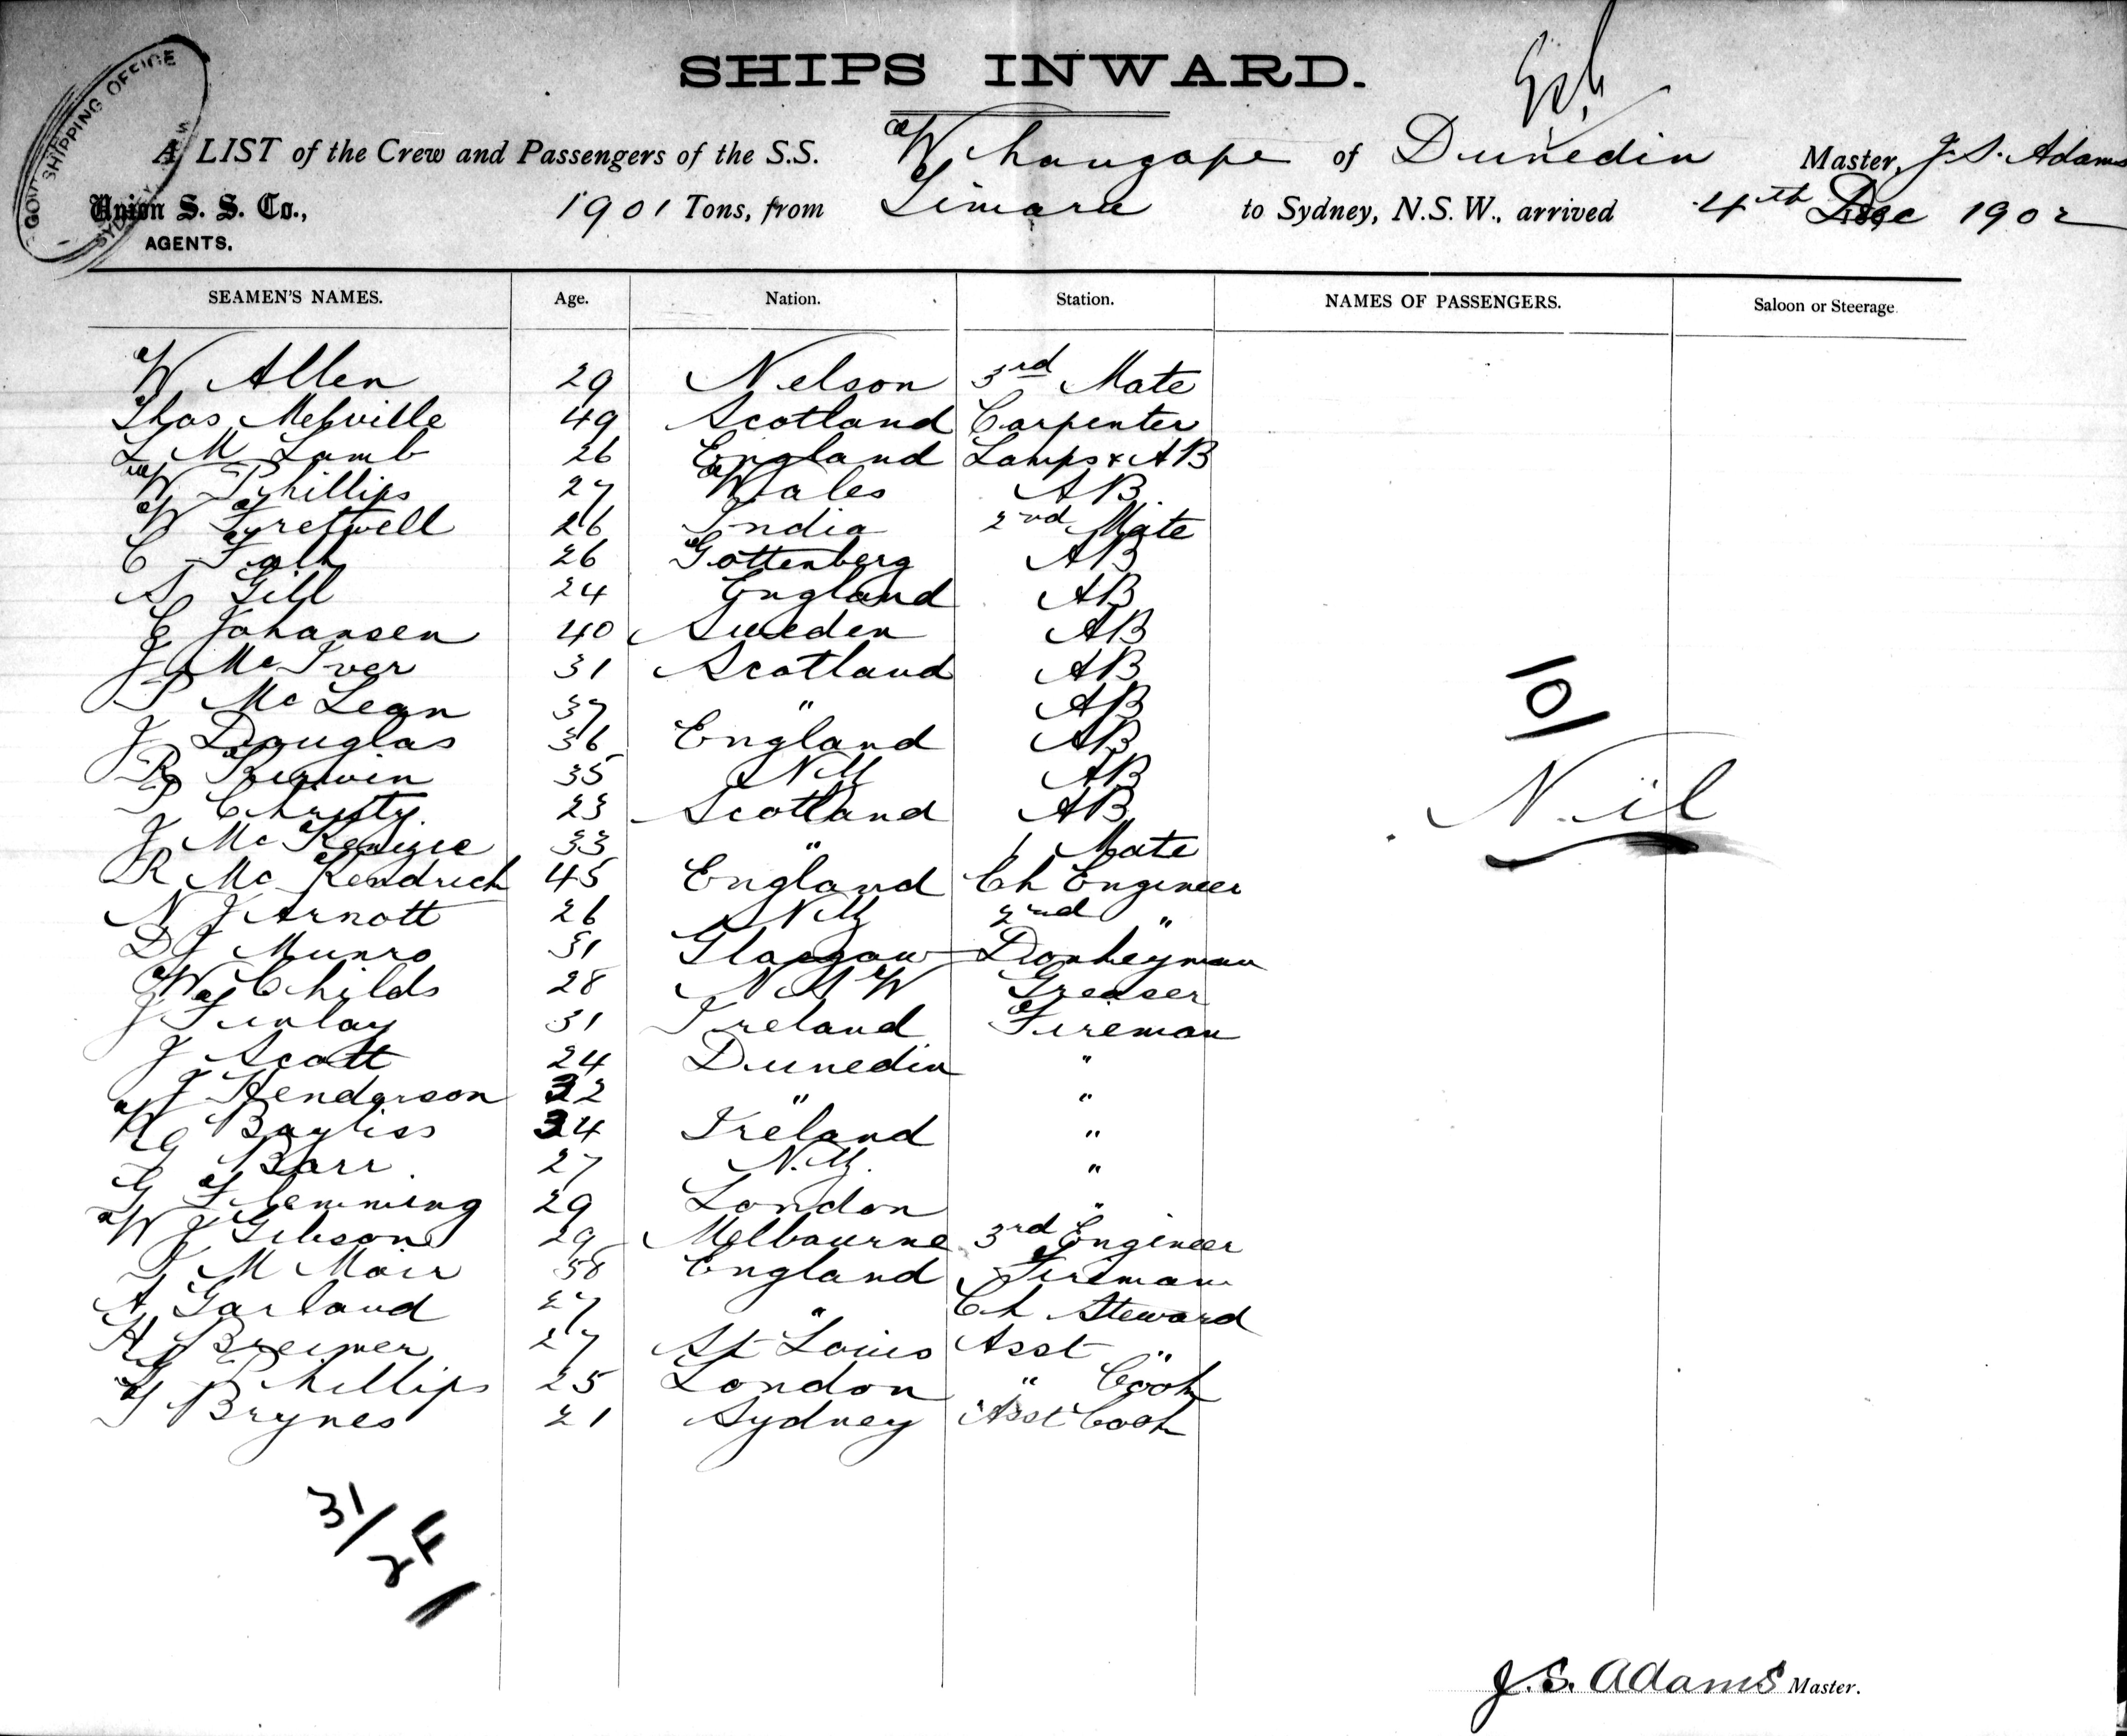 SHIPS INWARD.
GOVT SHIPPING OFFICE SYDNEY
A LIST of the Crew and Passengers of the S.S. Whangape of Dunedin Master, J. S. Adams
Union S. S. Co., 1901 Tons, from Timaru to Sydney, N.S.W., arrived 4th Dec 1902
AGENTS.
SEAMEN'S NAMES. Age. Nation. Station. NAMES OF PASSENGERS. Saloon or Steerage
W Allen 29 Nelson 3rd Mate
Thos Melville 49 Scotland Carpenter
L M Lamb 26 England Lamps & AB
W Phillips 27 Wales AB
W Fretwell 26 India 2nd Mate
C Falk 26 Gottenberg AB
A Gill 24 England AB
C Johansen 40 Sweden AB
J McIver 31 Scotland AB
P McLean 37 " AB
101
J Douglas 36 England AB
R 35 NZ AB
Nil
P Christy. 23 Scotland AB
J McKenzie 33 " 1 Mate
R McKendrich 45 England Ch Engineer
N J Arnott 26 NZ 2nd "
D J Munro 31 Glasgow Donkeyman
W Childs 28 NSW Greaser
J Finlay 31 Ireland Fireman
J Scott 24 Dunedin "
J Henderson 32 " "
W Bayliss 34 Ireland "
G Barr. 27 N.Z. "
G Flemming 29 London "
W J Gibson 29 Melbourne 3rd Engineer
J M Mair 38 England Fireman
A Garland 27 " Ch Steward
H Breimer 27 St Louis Asst "
G Phillips 25 London " Cook
J Brynes 21 Sydney Asst Cook
31/
2F
J.S. Adams Master.